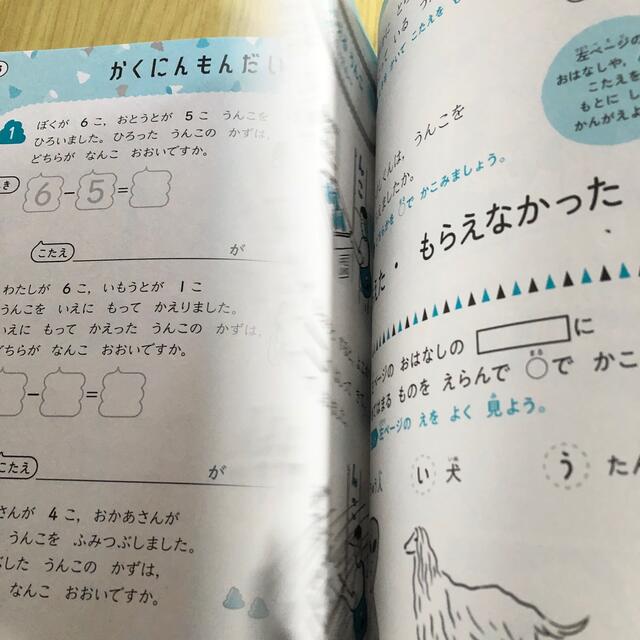 かくにんもんだい
1
ぼくが 6こ, おとうとが 5こ うんこを
ひろいました。ひろった うんこの かずは,
どちらが なんこ おおいですか。
き
6-5=
こたえ
が
わたしが 6こ, いもうとが 1こ
うんこを いえに もって かえりました。
いえに もって かえった うんこの かずは,
どちらが なんこ おおいですか。
- =
こたえ
が
さんが 4こ, おかあさんが
うんこを ふみつぶしました。
した うんこの かずは,
なんこ おおいですか。
左ページの
おはなしや,
こたえを
もとに し
かんがえよう
こたえを
は, うんこを
ましたか。
で かこみましょう。
た・もらえなかった
ページの おはなしの に
はまる ものを えらんで で かこ
左ページの えを よく 見よう。
い 犬
う たん